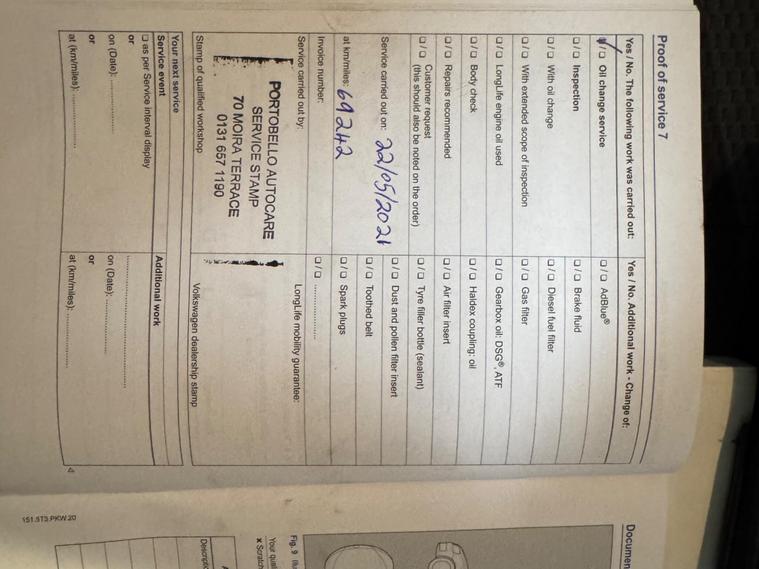 Proof of service 7
Yes / No. The following work was carried out:
☑/☐ Oil change service
☐/☐ Inspection
☐/☐ With oil change
☐/☐ With extended scope of inspection
☐/☐ LongLife engine oil used
☐/☐ Body check
☐/☐ Repairs recommended
☐/☐ Customer request
(this should also be noted on the order)
Service carried out on: 22/05/2021
at km/miles: 69242
Invoice number:
Service carried out by:
PORTOBELLO AUTOCARE
SERVICE STAMP
70 MOIRA TERRACE
0131 657 1190
Stamp of qualified workshop
Yes / No. Additional work - Change of:
☐/☐ AdBlue®
☐/☐ Brake fluid
☐/☐ Diesel fuel filter
☐/☐ Gas filter
☐/☐ Gearbox oil: DSG®, ATF
☐/☐ Haldex coupling: oil
☐/☐ Air filter insert
☐/☐ Tyre filler bottle (sealant)
☐/☐ Dust and pollen filter insert
☐/☐ Toothed belt
☐/☐ Spark plugs
☐/☐ ....................
LongLife mobility guarantee:
Volkswagen dealership stamp
Your next service
Service event
☐ as per Service interval display
or
on (Date): ....................
or
at (km/miles): ....................
Additional work
........................................
on (Date): ....................
or
at (km/miles): ....................
151.5T3.PKW.20
Documen
Fig. 9
Your quali
x Scratch
Descripti